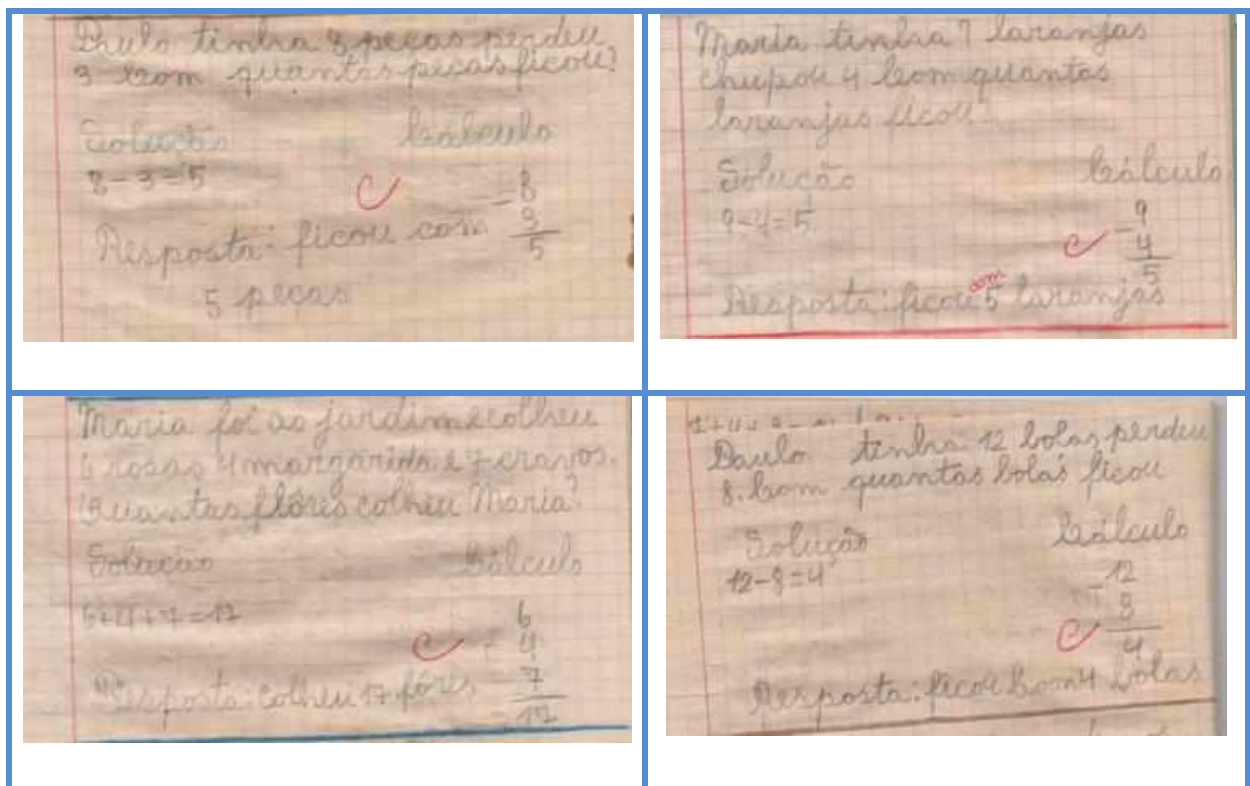 Paulo tinha 8 peças perdeu
3 Com quantas peças ficou?
Solução Cálculo
8-3=5 -8
3
Resposta: ficou com 5
5 peças
Maria tinha 9 laranjas
chupou 4 Com quantas
laranjas ficou
Solução Cálculo
9-4=5 -9
4
5
com
Resposta: ficou 5 laranjas
Maria foi ao jardim e colheu
6 rosas 4 margarida e 7 cravos.
Quantas flôres colheu Maria?
Solução Cálculo
6+4+7=17 6
4
7
Resposta: Colheu 17 fôres
17
Paulo tinha 12 bolas perdeu
8. Com quantas bolas ficou
Solução Cálculo
12-8=4 -12
8
4
Resposta: ficou Com 4 bolas